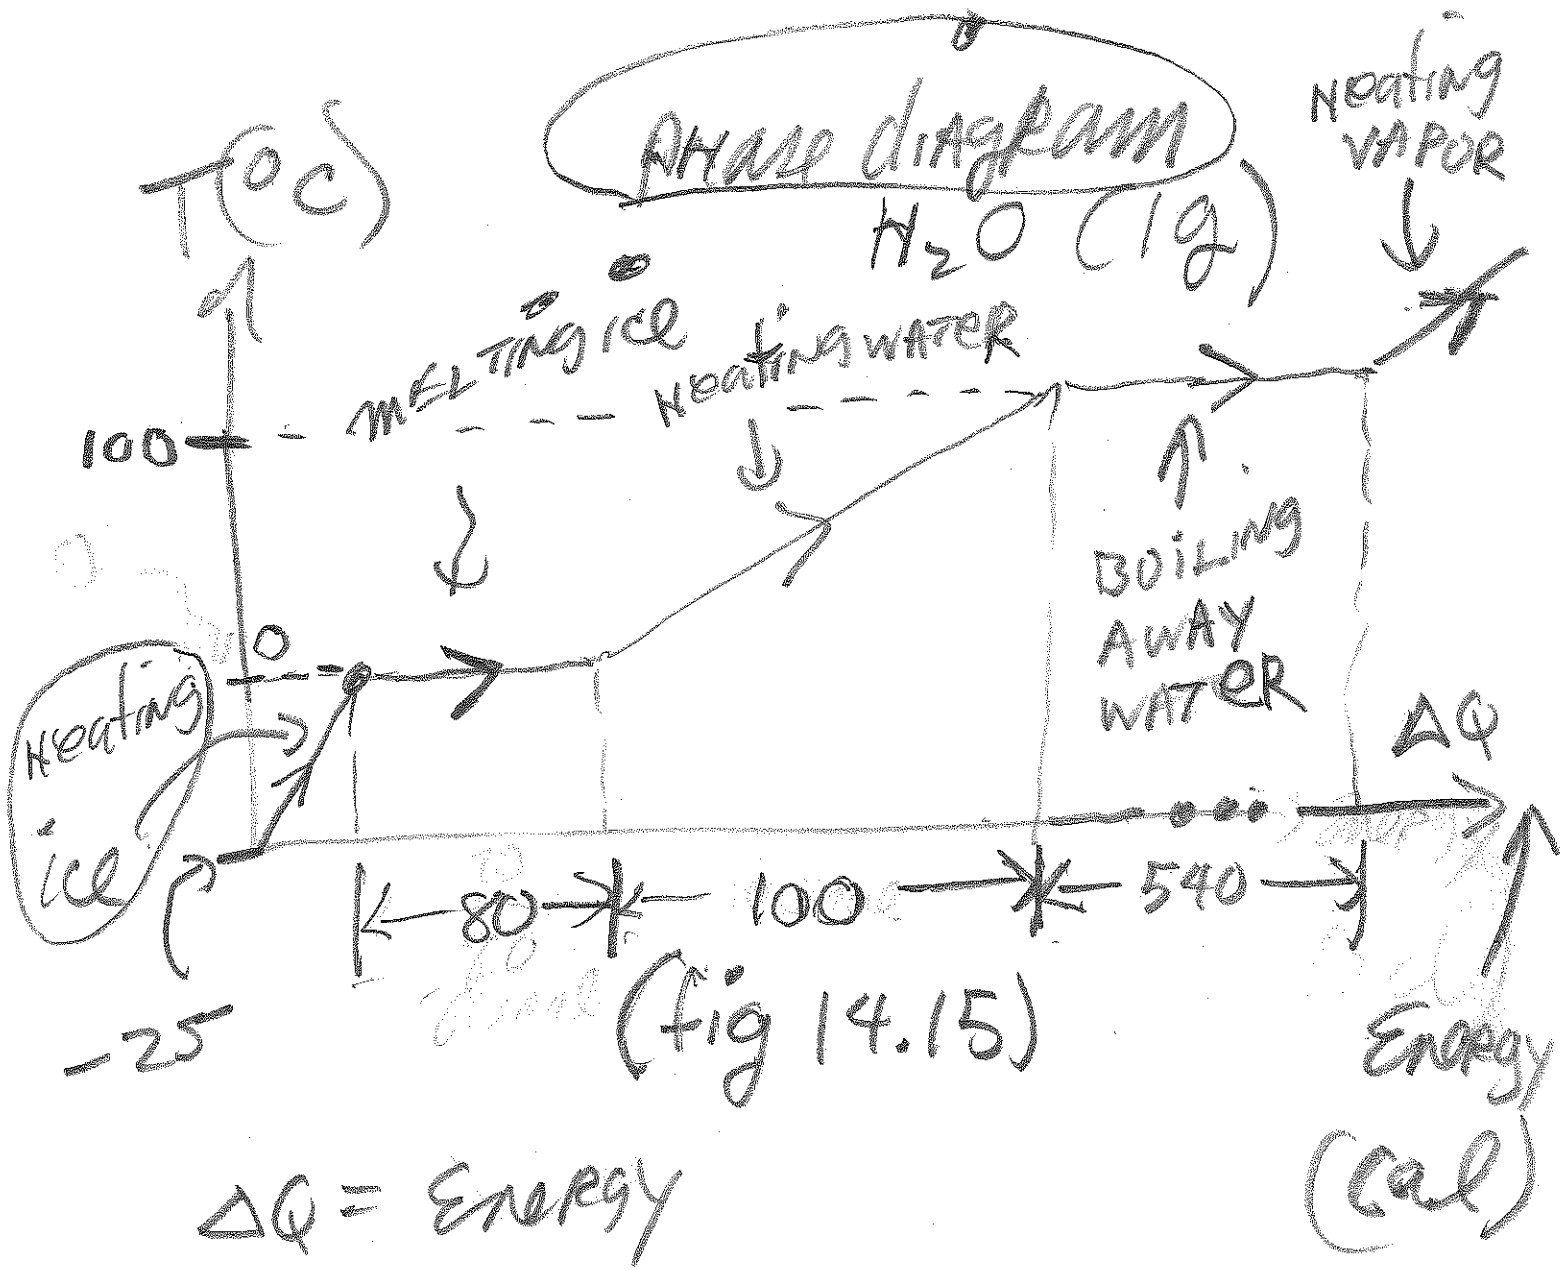 Phase diagram
H₂O (1g)
T(°C)
Heating
VAPOR
MELTING ice
Heating WATER
100
BOILING
AWAY
WATER
0
Heating
ice
ΔQ
80
100
540
-25
(fig 14.15)
Energy
(cal)
ΔQ = Energy